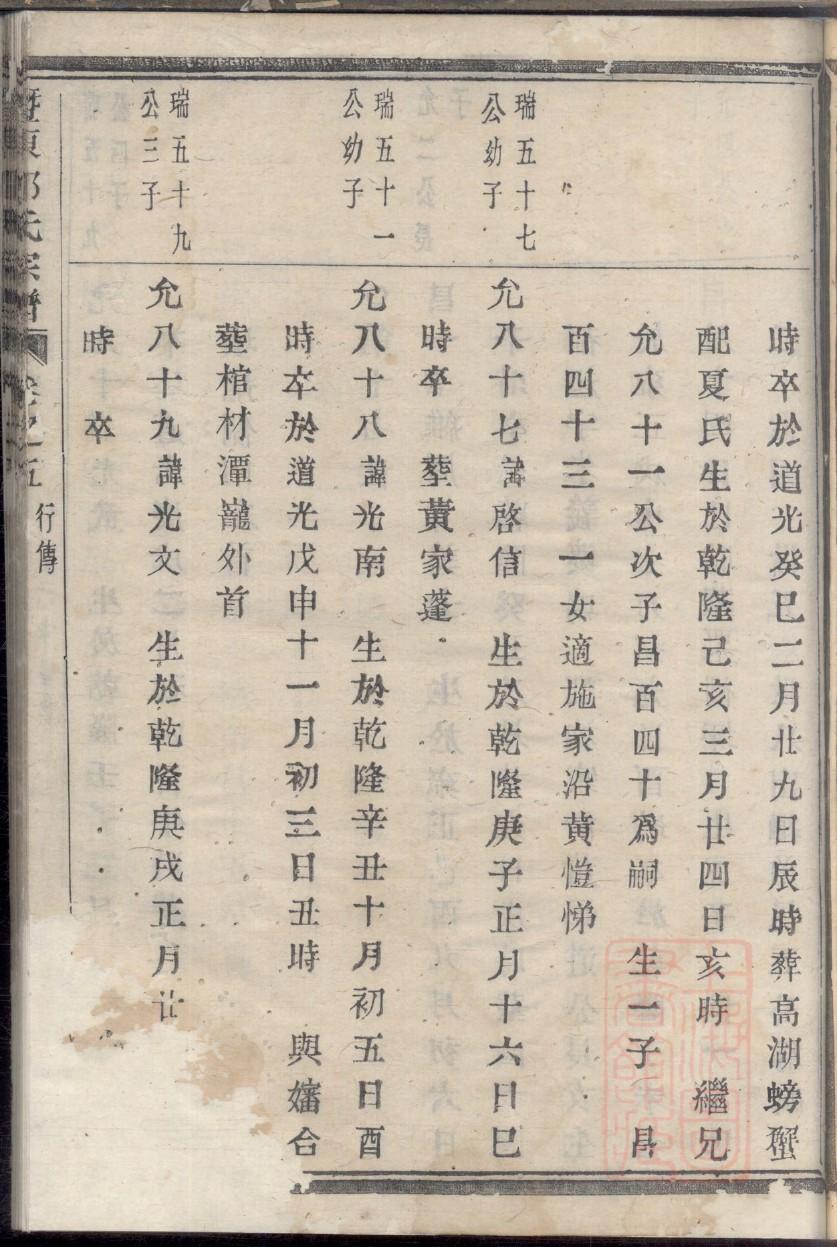 時卒於道光癸巳二月廿九日辰時葬高湖螃蟹
配夏氏生於乾隆己亥三月廿四日亥時 繼兄
允八十一公次子昌百四十爲嗣 生一子 昌
百四十三 一女適施家沿黄愷悌
瑞五十七
公幼子
允八十七諱啓信 生於乾隆庚子正月十六日巳
時卒 塟黄家蓬
瑞五十一
公幼子
允八十八諱光南 生於乾隆辛丑十月初五日酉
時卒於道光戊申十一月初三日丑時 與嬸合
塟棺材潭巃外首
瑞五十九
公三子
允八十九諱光文 生於乾隆庚戌正月廿
時 卒
東 氏宗譜 卷之五 行傳